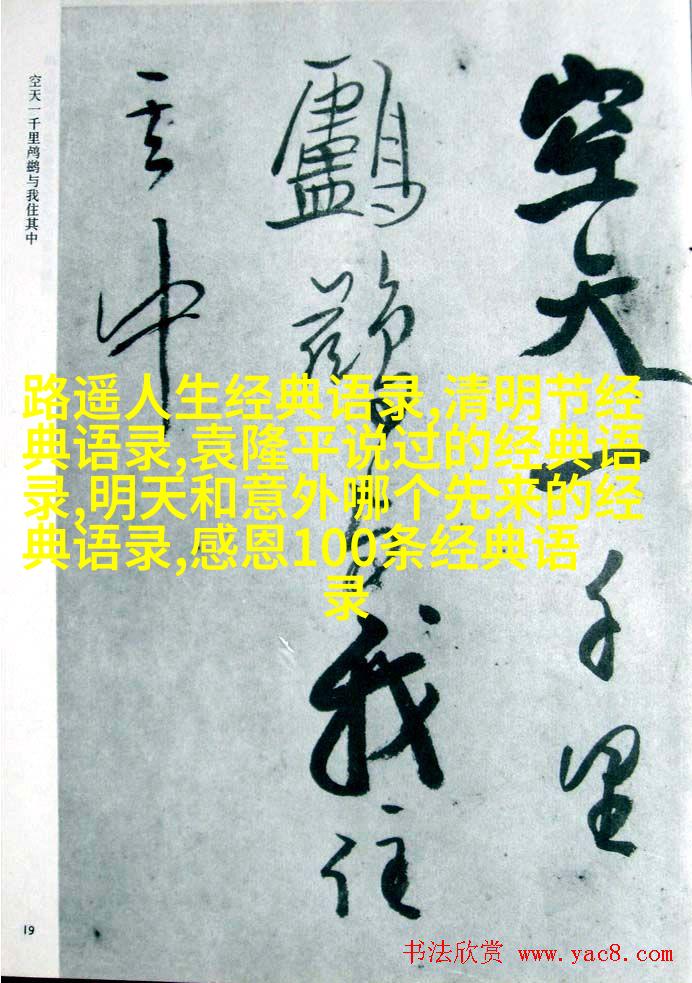 空天一千里
鸕鶿我住
其中
空天一千里鸬鹚与我住其中
路遥人生经典语录,清明节经
典语录,袁隆平说过的经典语
录,明天和意外哪个先来的经
典语录,感恩100条经典语
录
19
书法欣赏 www.yac8.com